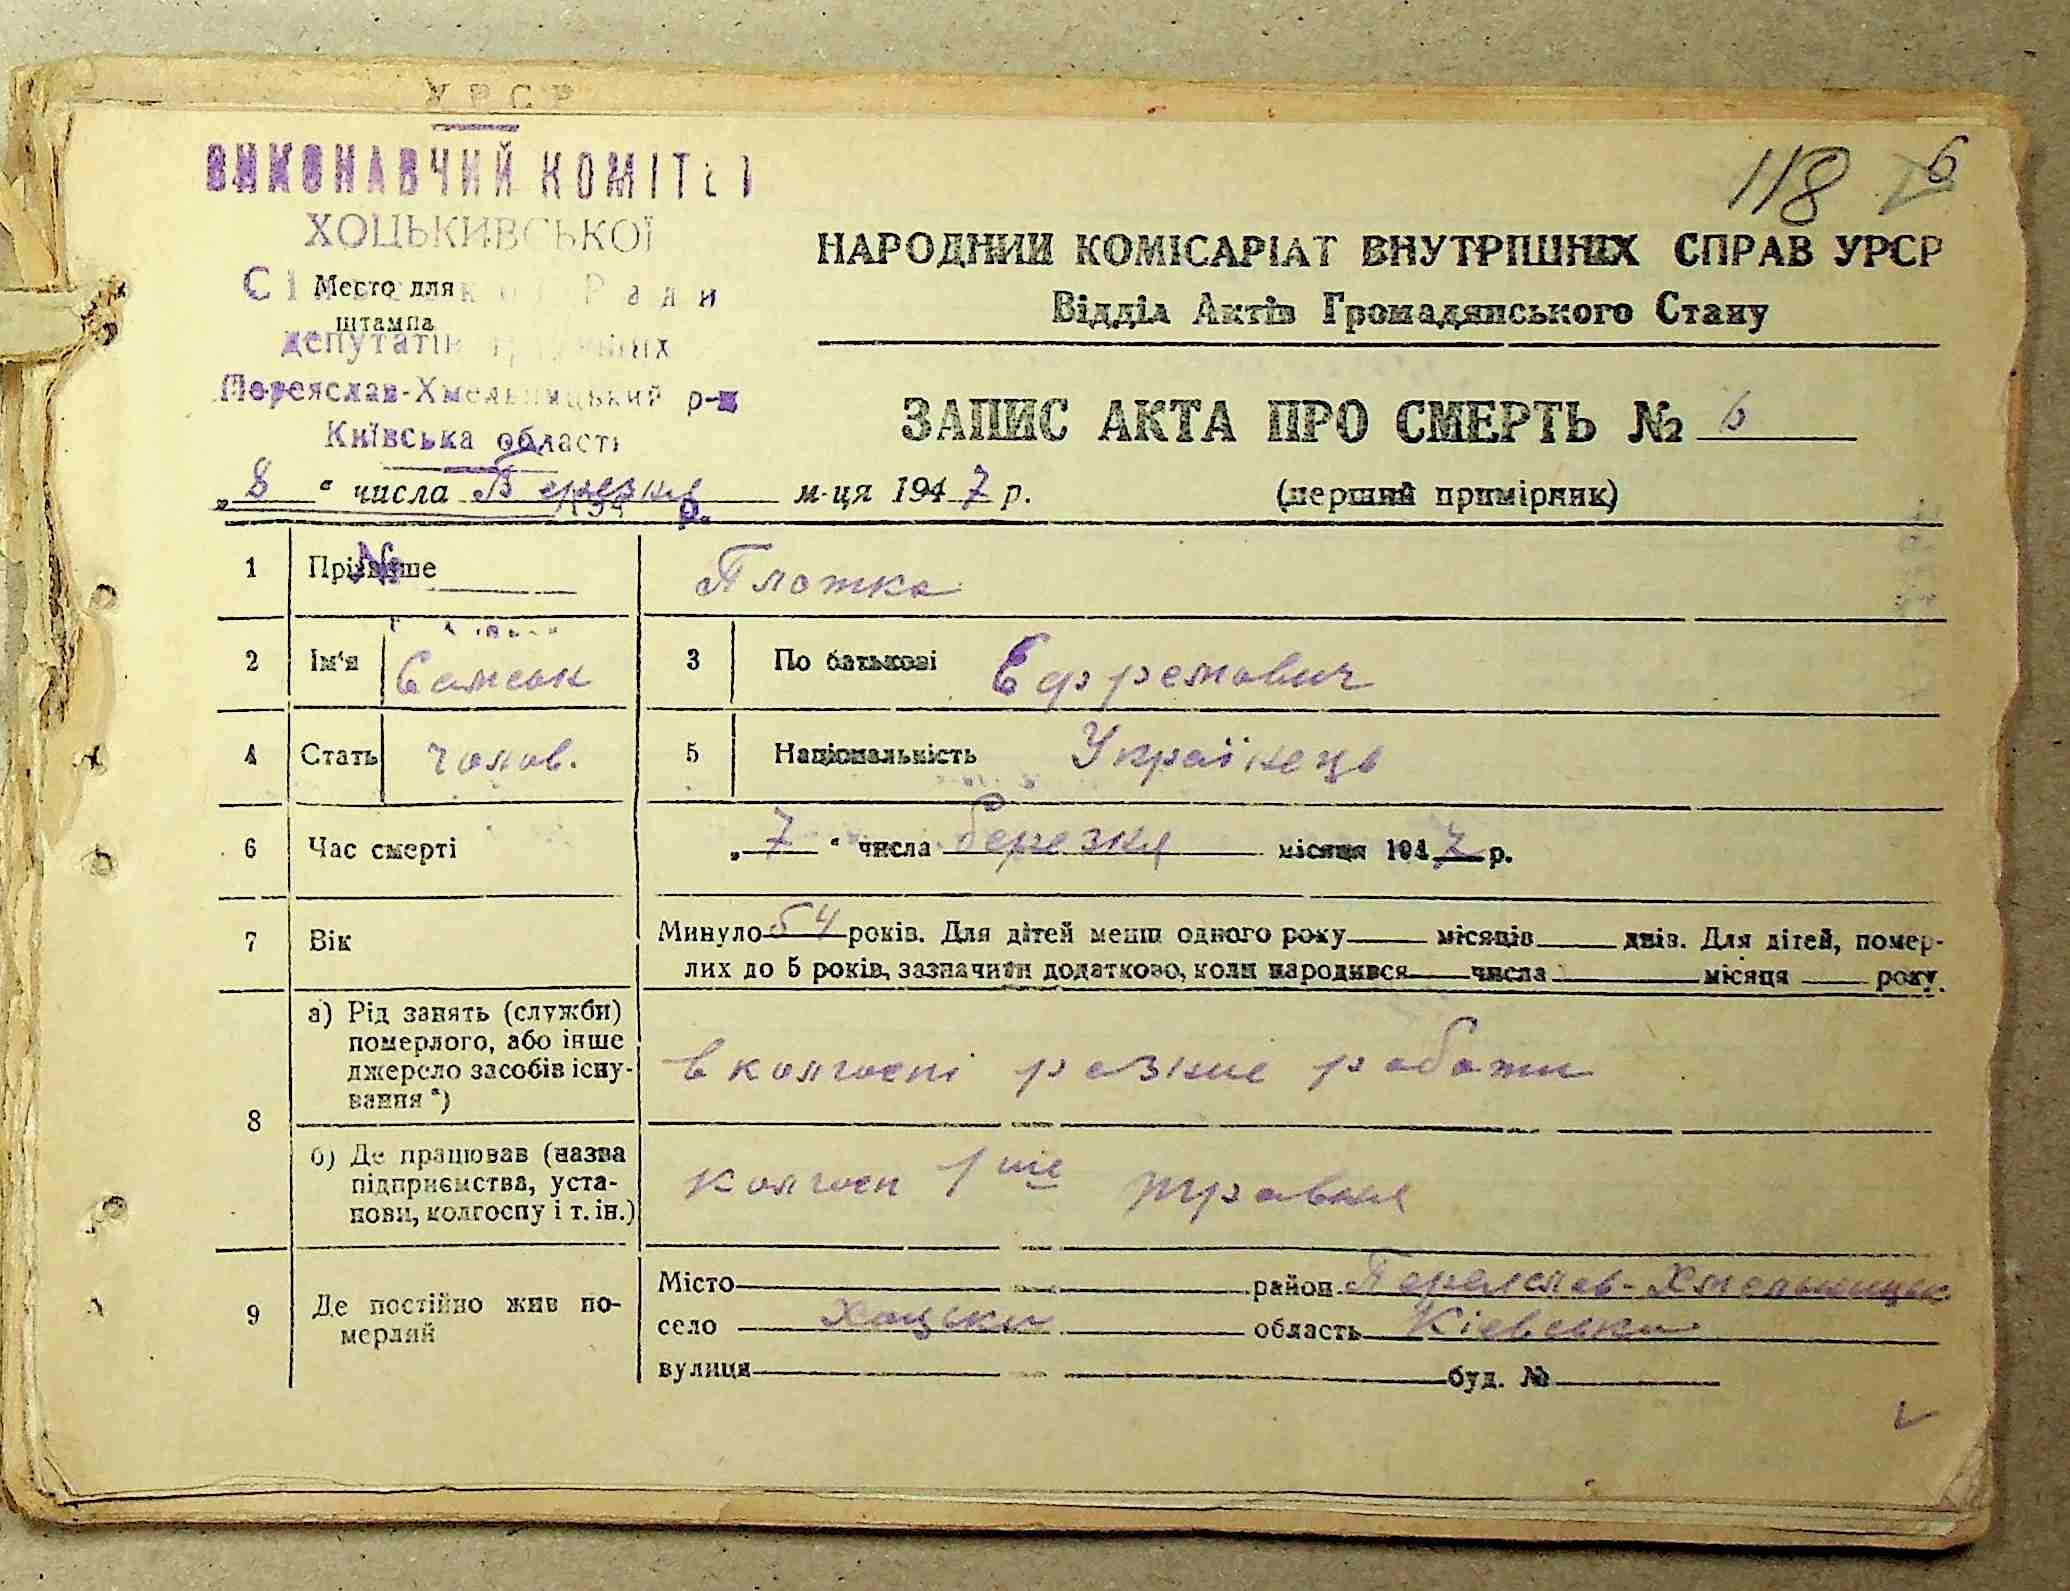 УРСР
118 6
ВИКОНАВЧИЙ КОМІТЕТ
ХОЦЬКИВСЬКОЇ
Сільської Ради
Место для
штампа
депутатів трудящих
Переяслав-Хмельницький р-н
Київська області
НАРОДНИЙ КОМІСАРІАТ ВНУТРІШНІХ СПРАВ УРСР
Відділ Актів Громадянського Стану
ЗАПИС АКТА ПРО СМЕРТЬ № 6
„8“ числа Березня м-ця 1947 р.
(перший примірник)
194 р.
№
1 Прізвище Плотка
2 Ім'я Самсон 3 По батькові Ефремович
4 Стать чолов. 5 Національність Українець
6 Час смерті „7“ числа березня місяця 1947 р.
7 Вік Минуло 64 років. Для дітей менш одного року місяців днів. Для дітей, помер-
лих до 5 років, зазначити додатково, коли народився числа місяця року
8 а) Рід занять (служби)
померлого, або інше
джерело засобів існу-
вання *)
в колгоспі разние работи
б) Де працював (назва
підприємства, уста-
нови, колгоспу і т. ін.)
колгосп 1ше травня
9 Де постійно жив по-
мерлий
Місто район Переяслав-Хмельницьк
село Хоцьки область Кіевська
вулиця буд. №